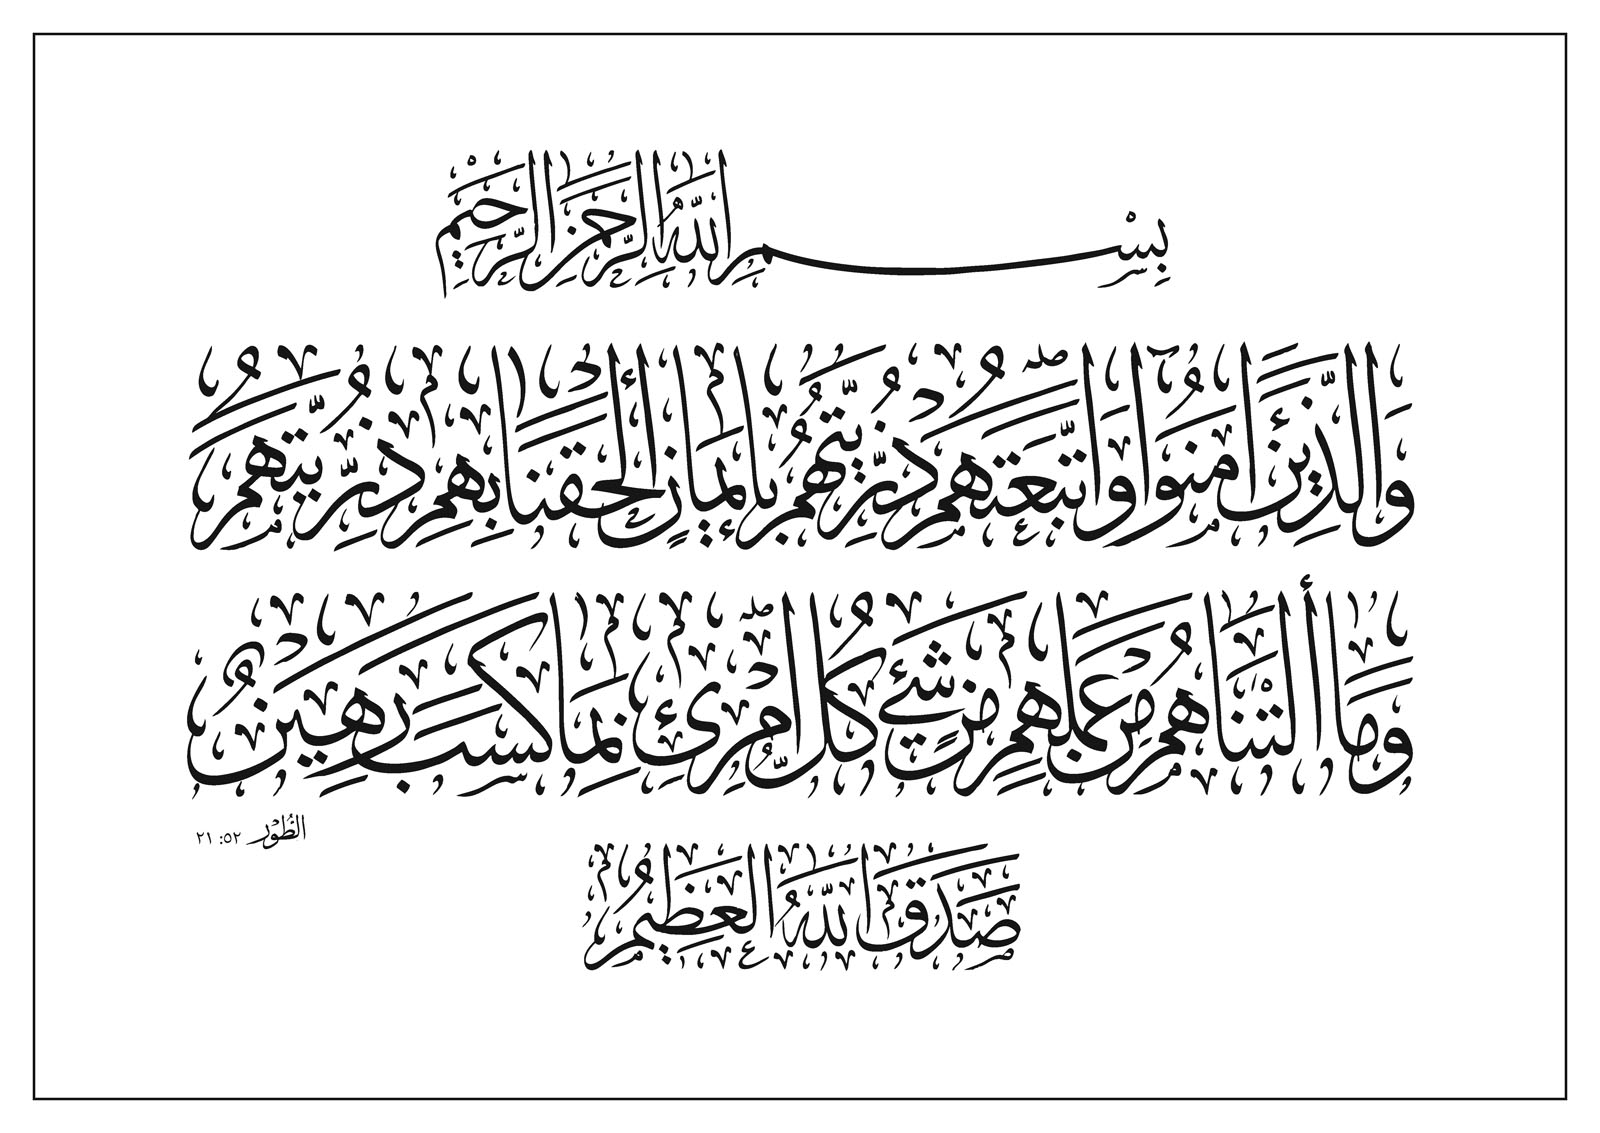 بِسْمِ اللَّهِ الرَّحْمَنِ الرَّحِيمِ
وَالَّذِينَ آمَنُوا وَاتَّبَعَتْهُمْ ذُرِّيَّتُهُمْ بِإِيمَانٍ أَلْحَقْنَا بِهِمْ ذُرِّيَّتَهُمْ
وَمَا أَلَتْنَاهُمْ مِنْ عَمَلِهِمْ مِنْ شَيْءٍ كُلُّ امْرِئٍ بِمَا كَسَبَ رَهِينٌ
الطُّوْر ٥٢: ٢١
صَدَقَ اللَّهُ الْعَظِيمُ